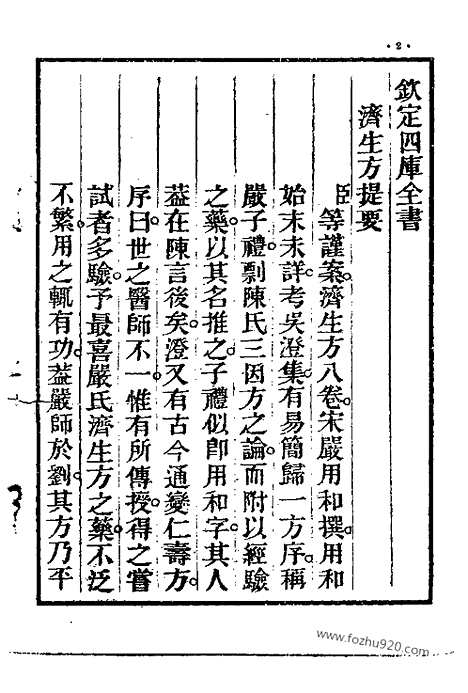 ·2·
欽定四庫全書
濟生方提要
臣等謹案濟生方八卷宋嚴用和撰用和
始末未詳考吳澄集有易簡歸一方序稱
嚴子禮剽陳氏三因方之論而附以經驗
之藥以其名推之子禮似卽用和字其人
葢在陳言後矣澄又有古今通變仁壽方
序曰世之醫師不一惟有所傳授得之嘗
試者多驗予最喜嚴氏濟生方之藥不泛
不繁用之輒有功葢嚴師於劉其方乃平
www.fozhu920.com